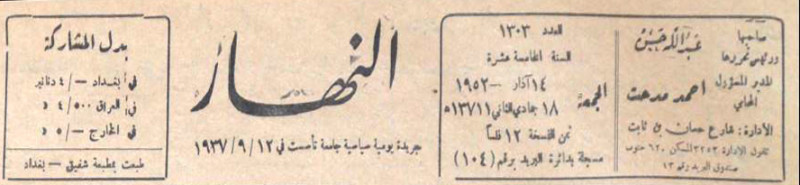 صاحبها
ورئيس تحريرها
عبدالله حسين
المدير المسؤول
المحامي
احمد مدحت
الادارة: شارع حسان بن ثابت
تلفون الادارة ٣٢٥٣ المسكن ٦٢٠ جنوب
صندوق البريد رقم ١٣
العدد ١٣٠٣
السنة الخامسة عشرة
الجمعة
١٤ آذار – ١٩٥٢
١٨ جمادي الثاني ١٣٧١١هـ
ثمن النسخة ١٢ فلساً
مسجلة بدائرة البريد برقم (١٠٤)
النهار
جريدة يومية سياسية جامعة تأسست في ١٢/٩/١٩٣٧
بدل المشاركة
في بغداد –/٤ دنانير
في العراق ٥٠٠/٤ د
في الخارج –/٥ د
طبعت بمطبعة شفيق – بغداد